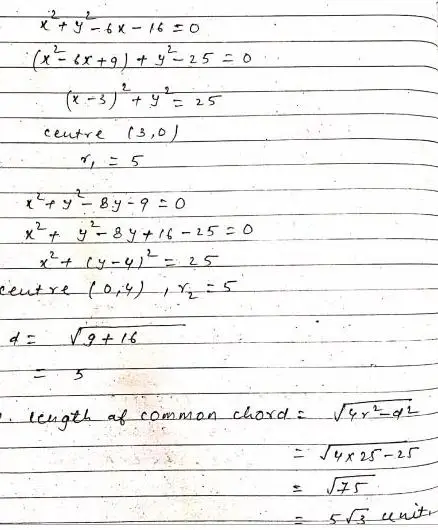 x² + y² - 6x - 16 = 0
(x² - 6x + 9) + y² - 25 = 0
(x - 3)² + y² = 25
centre (3,0)
r₁ = 5
x² + y² - 8y - 9 = 0
x² + y² - 8y + 16 - 25 = 0
x² + (y - 4)² = 25
centre (0,4), r₂ = 5
d = √9 + 16
= 5
. length of common chord = √4r² - d²
= √4 × 25 - 25
= √75
= 5√3 unit